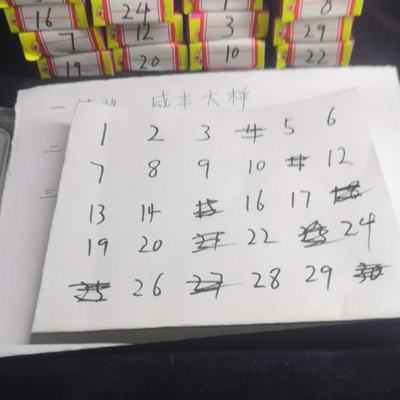 16 24 8
7 12 3 29
19 20 10 22
一 咸丰大样
二
三
1 2 3 4 5 6
7 8 9 10 11 12
13 14 15 16 17 18
19 20 21 22 23 24
25 26 27 28 29 30